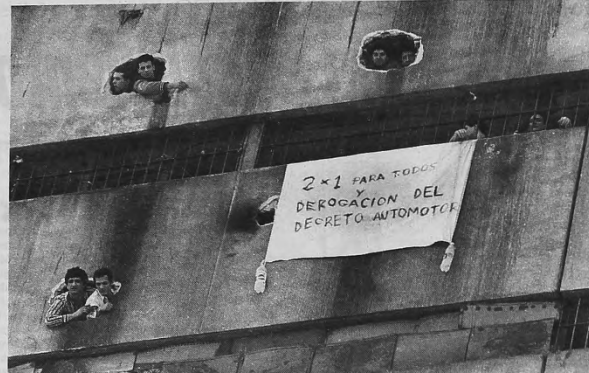 2x1 PARA TODOS
Y
DEROGACION DEL
DECRETO AUTOMOTOR